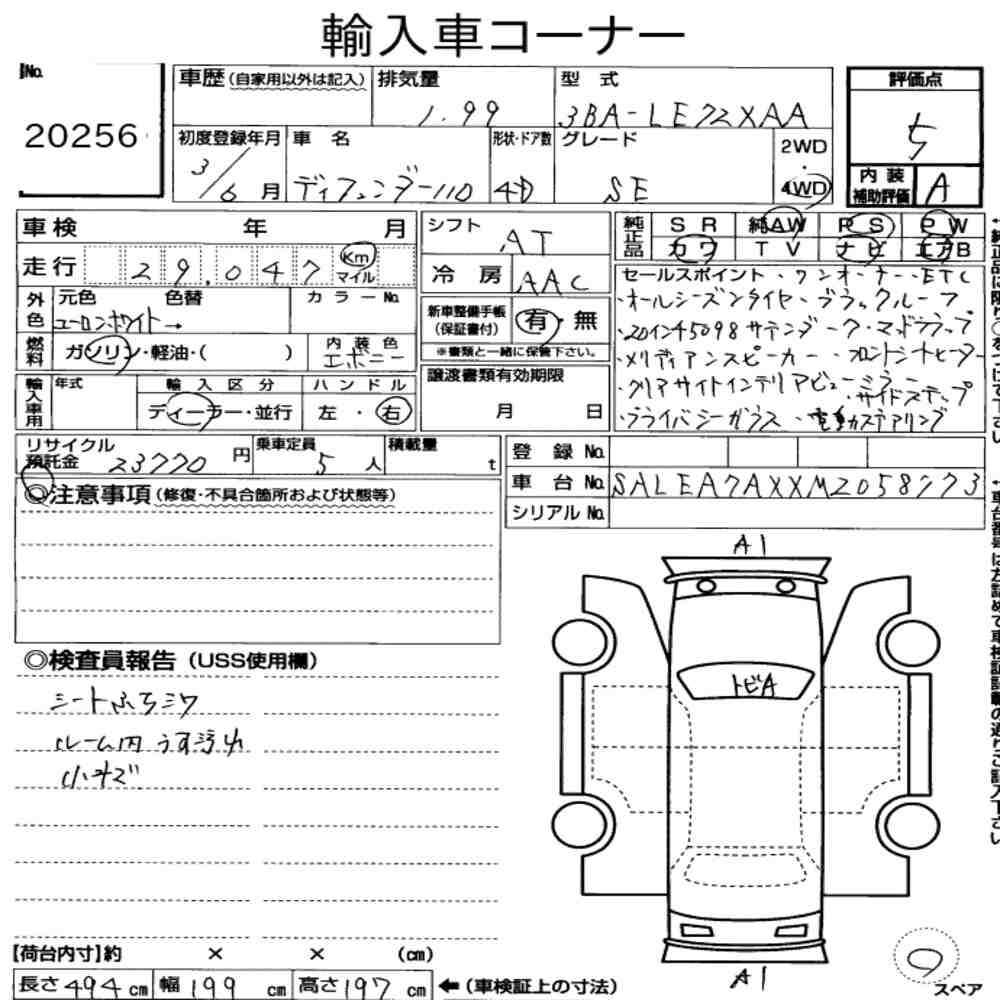 輸入車コーナー
No.
20256
車歴(自家用以外は記入)
排気量
1.99
型 式
3BA-LE72XAA
評価点
5
初度登録年月
3/6月
車 名
ディフェンダー110
形状・ドア数
4D
グレード
SE
2WD
・
4WD
内 装
補助評価
A
車検 年 月
走行 29,047 Km マイル
外色
元色 色替
ユーロンホワイト→
カラーNo.
燃料
ガソリン・軽油・( )
内装色
エボニー
輸入車用
年式
輸入区分
ディーラー・並行
ハンドル
左・右
シフト
AT
冷 房
AAC
新車整備手帳
(保証書付)
有・無
※書類と一緒に保管下さい。
譲渡書類有効期限
月 日
純正品
SR 純AW PS PW
カワ TV ナビ エアB
セールスポイント・ワンオーナー・ETC
・オールシーズンタイヤ・ブラックルーフ
・20インチ5098サテンダーク・マッドフラップ
・メリディアンスピーカー・フロントシートヒーター
・クリアサイトインテリアビューミラー
・サイドステップ
・プライバシーガラス・電動ステアリング
リサイクル
預託金 23770円
乗車定員
5人
積載量
t
登 録 No.
車 台 No. SALEA7AXXM2058773
シリアル No.
◎注意事項(修復・不具合箇所および状態等)
◎検査員報告(USS使用欄)
シートふちシワ
ルーム内うす汚れ
小キズ
A1
トビA
A1
スペア
【荷台内寸】約 × × (cm)
長さ494cm 幅199cm 高さ197cm ←(車検証上の寸法)